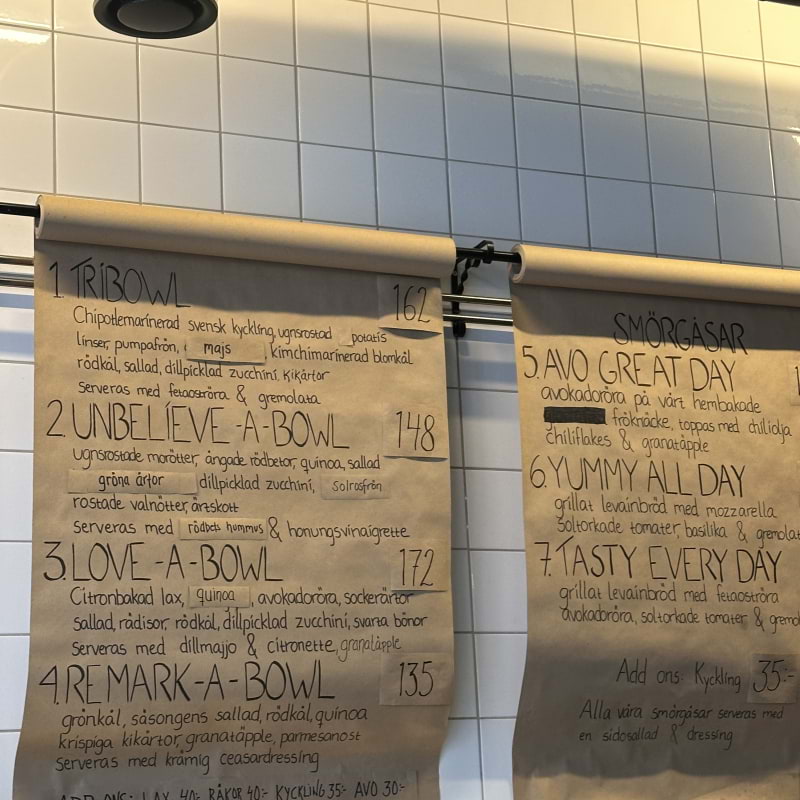 1 TRIBOWL 162
Chipotlemarinerad svensk kyckling, ugnsrostad potatis
linser, pumpafrön, majs kimchimarinerad blomkål
rödkål, sallad, dillpicklad zucchini, kikärtor
serveras med fetaoströra & gremolata
2. UNBELIEVE-A-BOWL 148
ugnsrostade morötter, ångade rödbetor, quinoa, sallad
gröna ärtor dillpicklad zucchini, solrosfrön
rostade valnötter, ärtskott
serveras med rödbets hummus & honungsvinaigrette
3. LOVE-A-BOWL 172
Citronbakad lax, quinoa, avokadoröra, sockerärtor
sallad, rädisor, rödkål, dillpicklad zucchini, svarta bönor
serveras med dillmajjo & citronette, granatäpple
4. REMARK-A-BOWL 135
grönkål, säsongens sallad, rödkål, quinoa
krispiga kikärtor, granatäpple, parmesanost
serveras med krämig ceasardressing
ADD ONS: LAX 40:- RÄKOR 40:- KYCKLING 35:- AVO 30:-
SMÖRGÅSAR
5. AVO GREAT DAY
avokadoröra på vårt hembakade
fröknäcke, toppas med chiliolja
chiliflakes & granatäpple
6. YUMMY ALL DAY
grillat levainbröd med mozzarella
soltorkade tomater, basilika &
7. TASTY EVERY DAY
grillat levainbröd med fetaoströra
avokadoröra, soltorkade tomater &
Add ons: Kyckling 35:-
Alla våra smörgåsar serveras med
en sidosallad & dressing